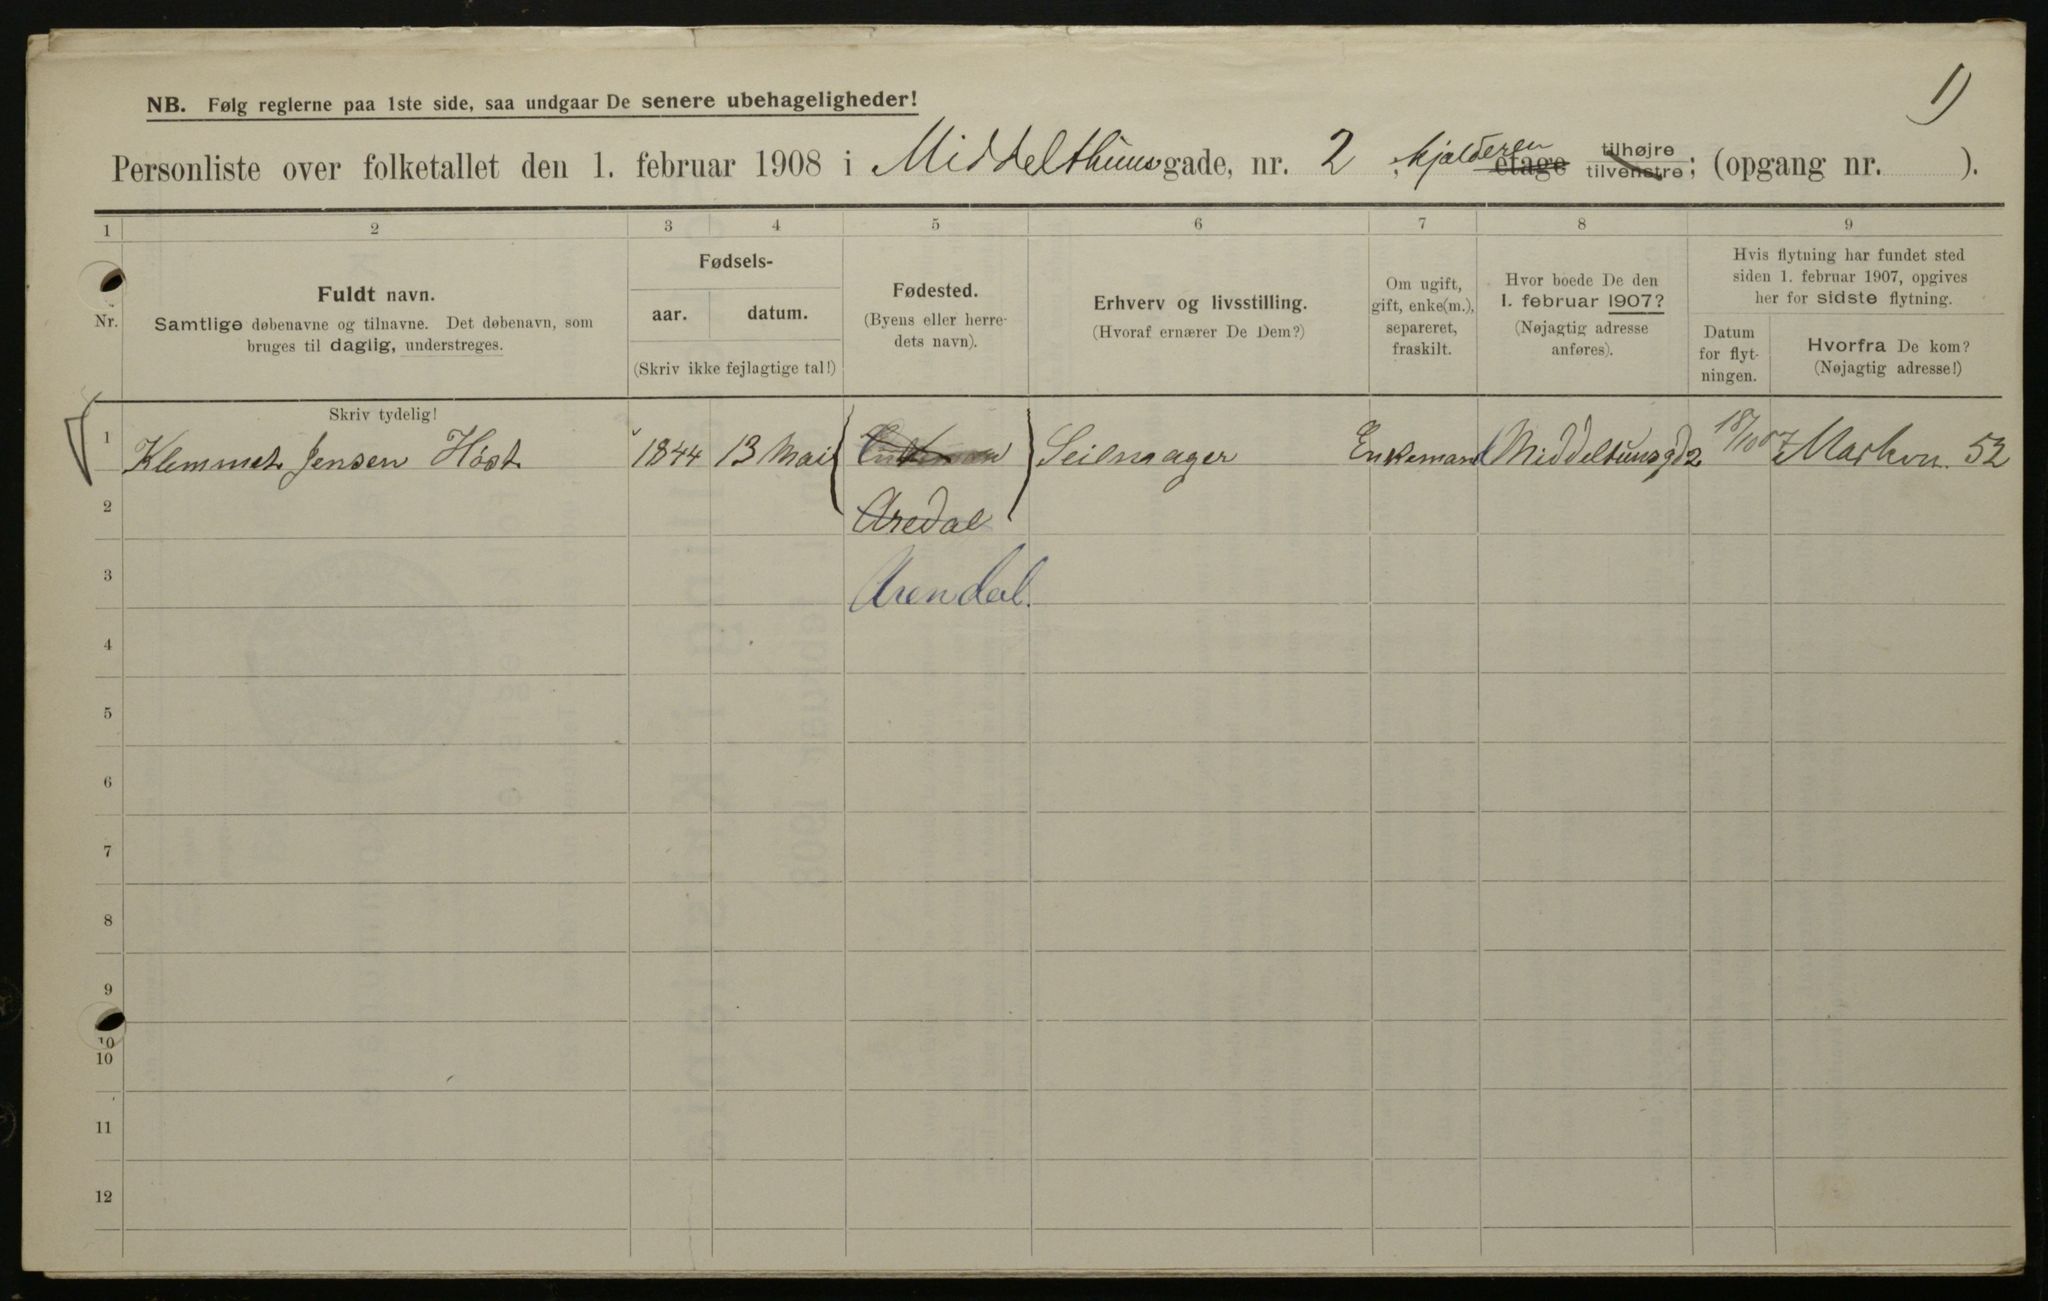 1)
NB. Følg reglerne paa 1ste side, saa undgaar De senere ubehageligheder!
Personliste over folketallet den 1. februar 1908 i Middelthunsgade, nr. 2, kjælderen etage tilhøjre tilvenstre; (opgang nr. ).
1 2 3 4 5 6 7 8 9
Nr.
Fuldt navn.
Samtlige døbenavne og tilnavne. Det døbenavn, som
bruges til daglig, understreges.
Fødsels-
aar. datum.
(Skriv ikke fejlagtige tal!)
Fødested.
(Byens eller herre-
dets navn).
Erhverv og livsstilling.
(Hvoraf ernærer De Dem?)
Om ugift,
gift, enke(m.),
separeret,
fraskilt.
Hvor boede De den
1. februar 1907?
(Nøjagtig adresse
anføres).
Hvis flytning har fundet sted
siden 1. februar 1907, opgives
her for sidste flytning.
Datum
for flyt-
ningen.
Hvorfra De kom?
(Nøjagtig adresse!)
Skriv tydelig!
1 Klemmet Jensen Höst 1844 13 Mai Enkeman Seilmager Enkemand Middeltunsgd 2 18/10 07 Markvn. 52
2 Aredal
3 Arendal.
4
5
6
7
8
9
10
10
11
12